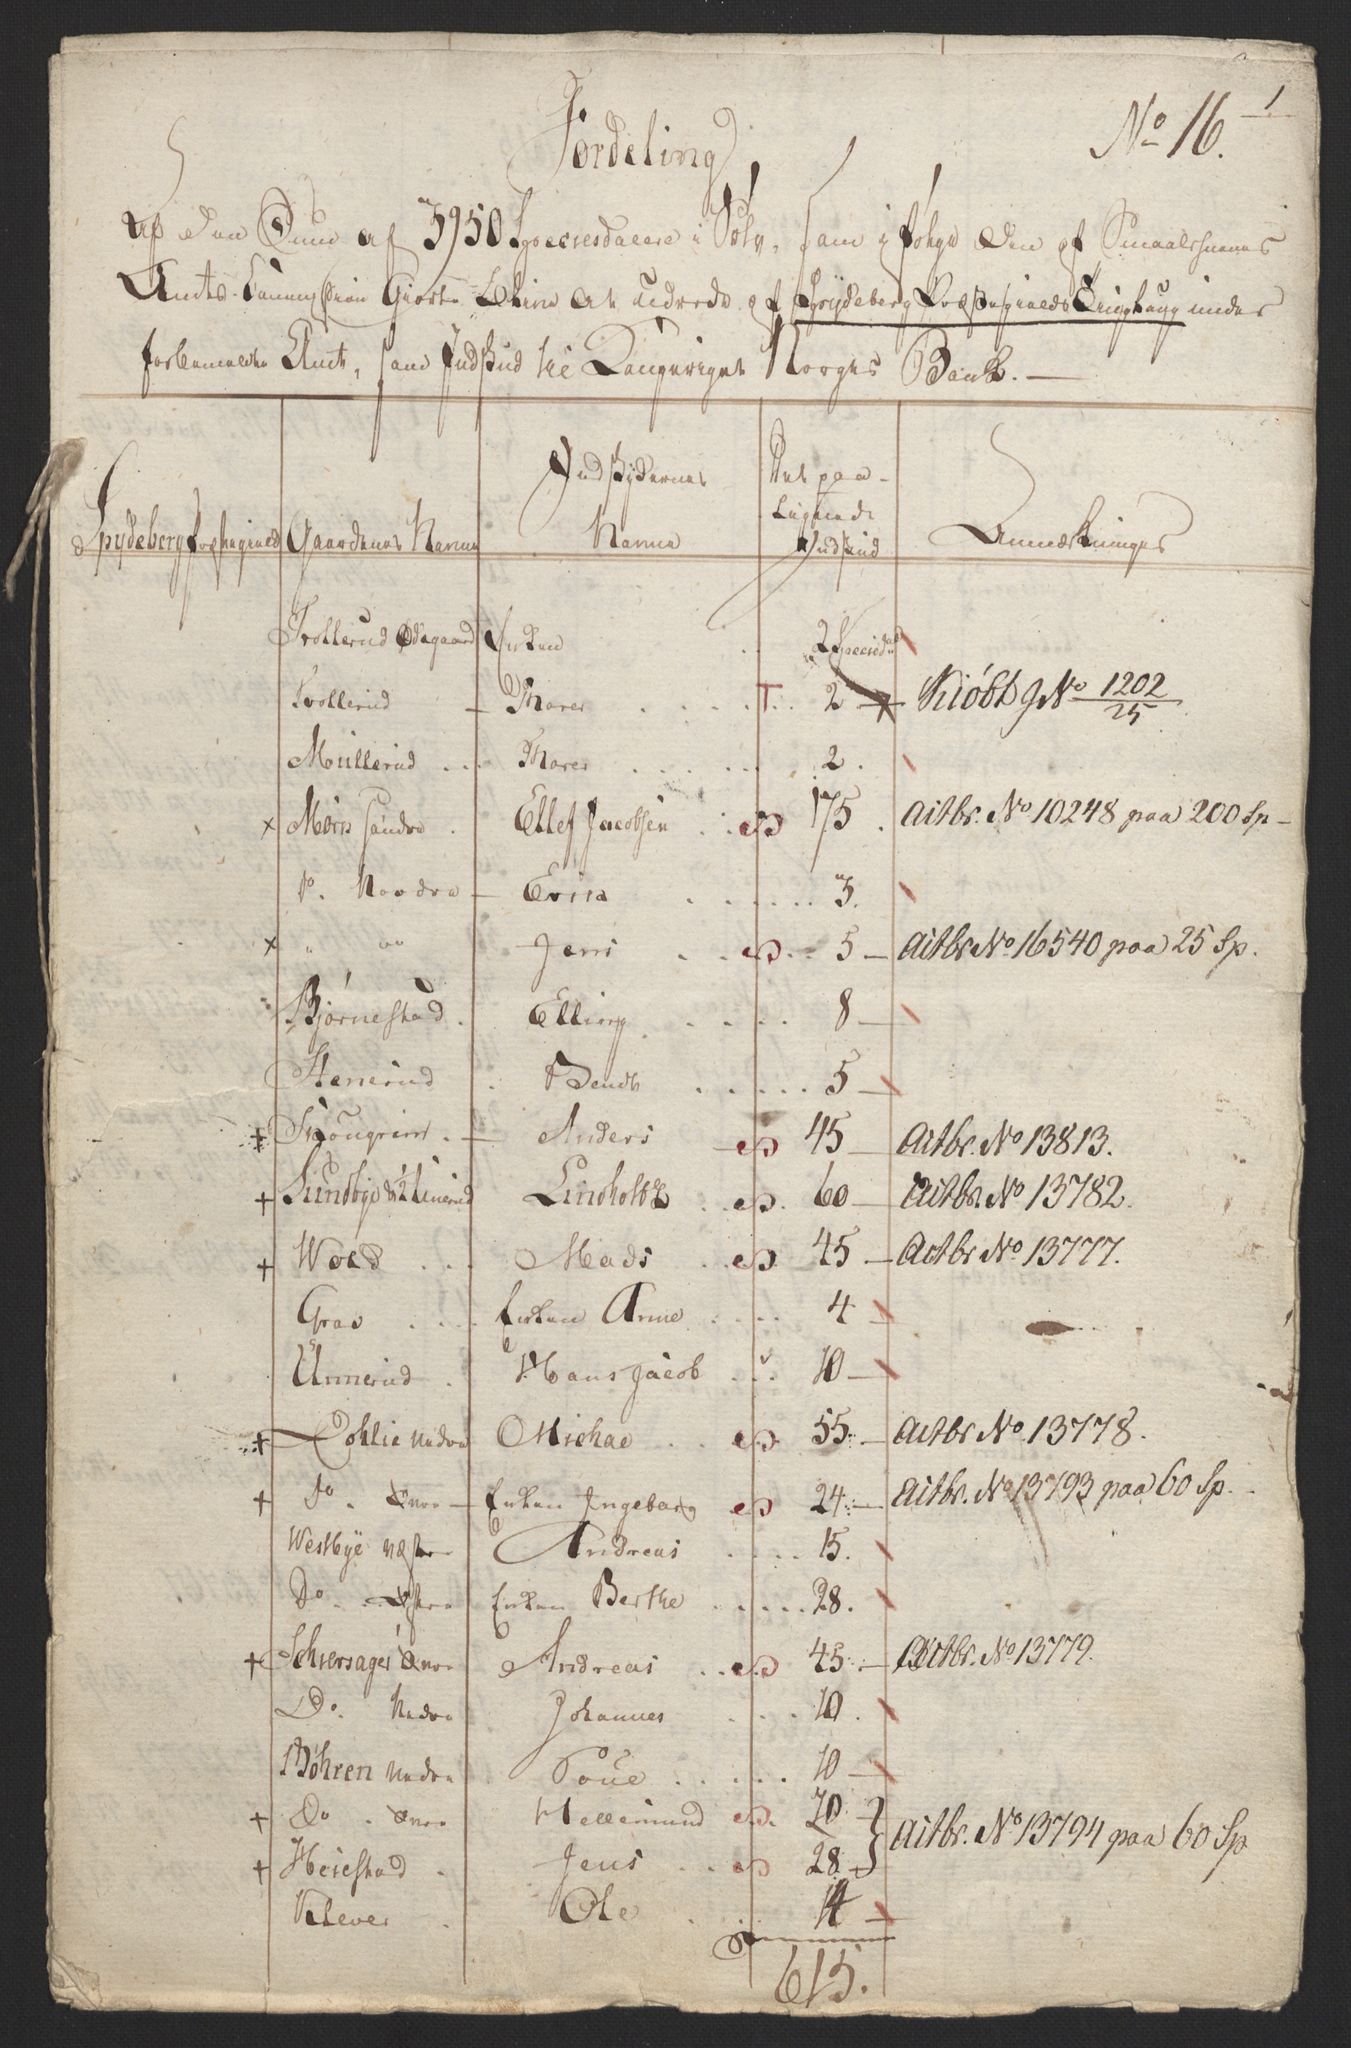 1
No 16.
Fordeling
af den Sum af 3950 Speciesdaler i Sølv, som i følge den af Smaalehnenes
Amts-Commission Giorte Lining at udrede af Spydeberg Præstegields Tinglaug under
forbemeldte Amt, som Indskud til Kongeriget Norges Bank. —
Spydeberg Præstegield Gaardenes Navne Indskydernes Navne Det paa-Lignende Indskud Anmerkninger
Trollerud Ødegaard Enken . . 2 Speciedal
Trollerud — Thorer . . . . T. . 2 — Kiøbt g No 1202/25
Mullerud . . . Thorer . . . . 2 .
x Mørn søndre . Ellef Jacobsen . . 175 . Actbr. No 10248 paa 200 Sp –
Do. Nordre — Erich . . . . . . 3.
x " Jens . . . . 5 — Actbr No 16540 paa 25 Sp.
Bjørnestad . Elling . . . . 8 —
Stenerud . Bendt . . . . . 5 —
+ Skougrim . — Anders 45 — Actbr. No 13813.
+ Sundbye & Linerud Lindholtz . . 60 — Actbr. No 13782.
+ Wold . . . Mads . . 45 — Actbr No 13777.
Grav . . . . Enken Anne . . . . 4 —
Unnerud . Hans Jacob . . . 10 —
+ Nedre Michael . . 55. — Actbr No 13778.
+ Do . Øvre — Enken Ingeborg 24. — Actbr. No 13793 paa 60 Sp. –
Westbye Vestre Andreas . . . . 15.
Do . Østre Enken Berthe . . . . . 28.
+ Øvre Andreas . . 45. — Actbr. No 13779.
Do. Nedre Johannes . . . 10 .
Bøhren Nedre Poul . . . . . 10 —
+ Do . Øvre Hellemund . 20 } Actbr. No 13794 paa 60 Sp
+ Heiestad . Jens . . 28 —
Klever . Ole . . . 14 —
615.